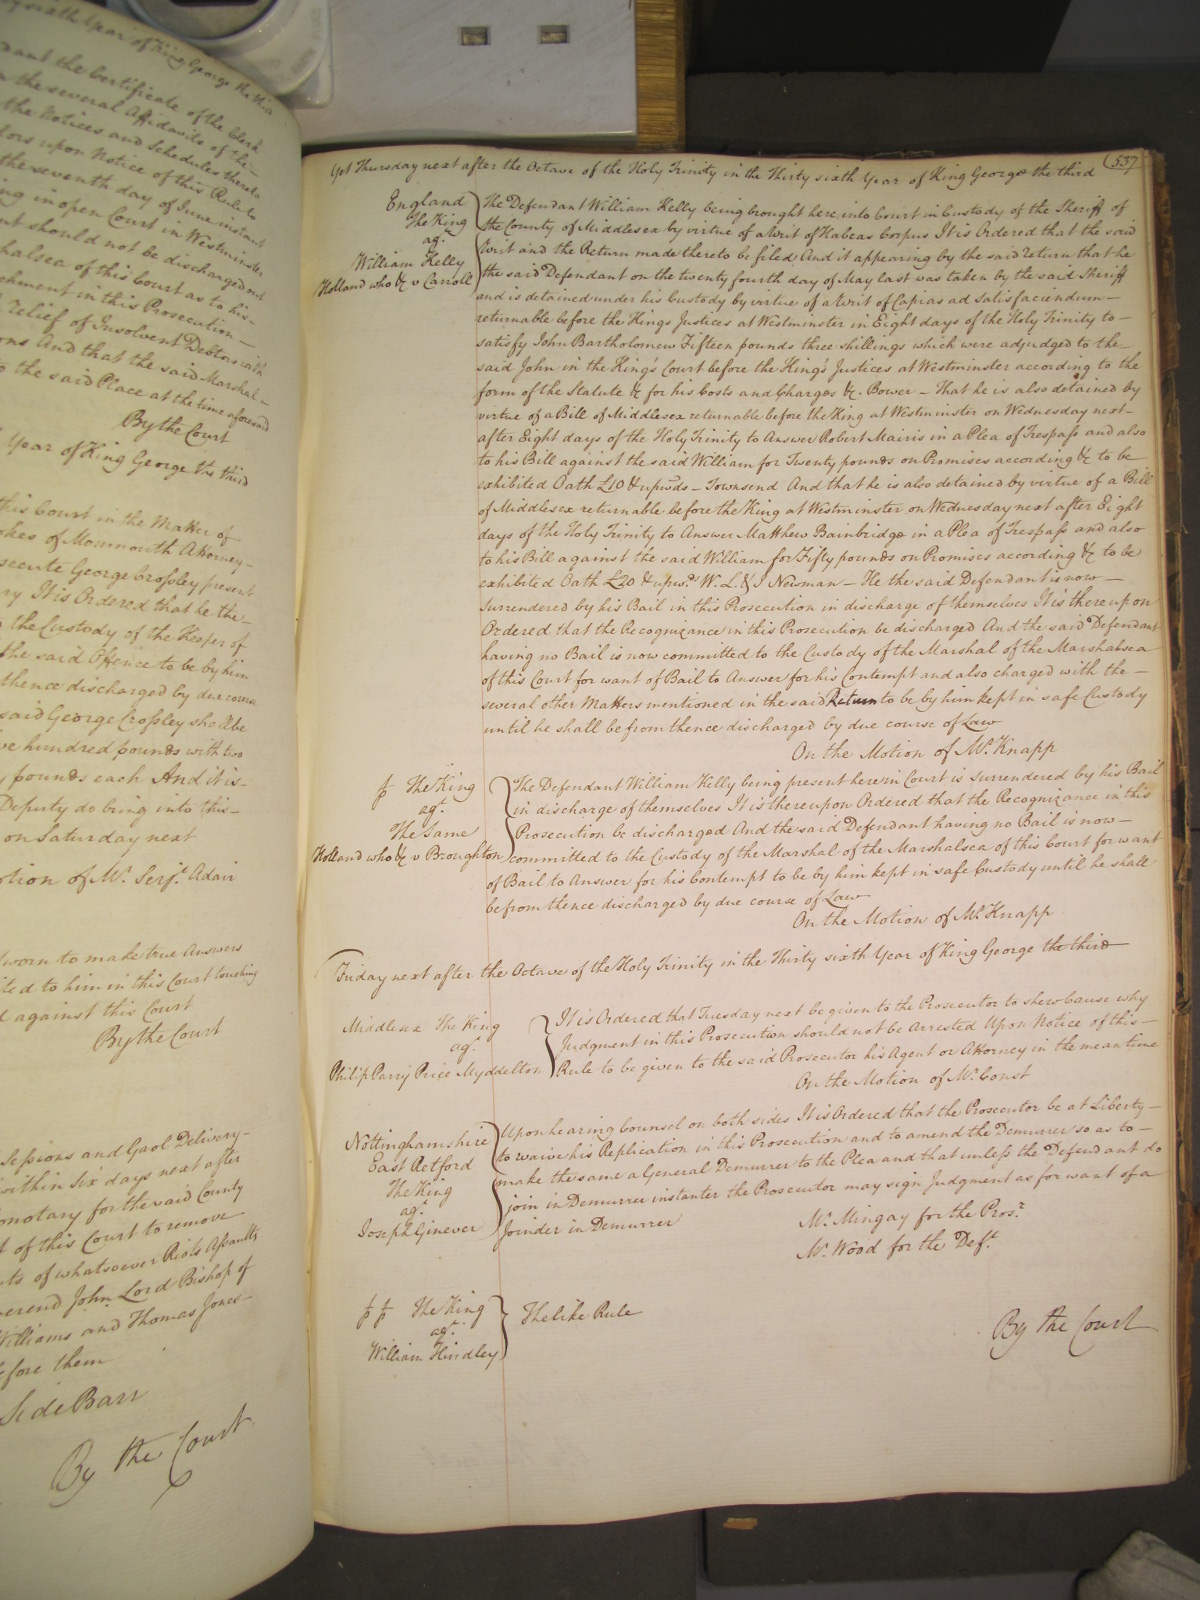 y sixth Year of King George the third
the Certificate of the Clerk
the several Affidavits of the
the Notices and Schedules thereto
tors upon Notice of this Rule to
the seventh day of June instant
ing in open Court in Westminster
nt should not be discharged out
halsea of this Court as to his-
chment in this Prosecution -
Relief of Insolvent Debtors with
ons And that the said Marshal -
the said Place at the time aforesaid
By the Court
Year of King George the third
this Court in the Matter of
okes of Monmouth Attorney -
secute George Crossley present
ry It is Ordered that he the -
the Custody of the Keeper of
the said Offence to be by him
thence discharged by due course
said George Crossley shall be
ve hundred pounds with two
pounds each And it is -
Deputy do bring into this -
on Saturday next
otion of Mr. Serjt. Adair
sworn to make true Answers
ited to him in this Court touching
d against this Court
By the Court
Sessions and Gaol Delivery -
within six days next after
onotary for the said County
t of this Court to remove
ts of whatsoever Riots Assaults
verend John Lord Bishop of
Williams and Thomas Jones -
before them
Side Barr
By the Court
537
Yet Thursday next after the Octave of the Holy Trinity in the Thirty sixth Year of King George the third
England
The King
agt.
William Kelly
Holland who &c v Carroll
The Defendant William Kelly being brought here into Court in Custody of the Sheriff of
the County of Middlesex by virtue of a Writ of Habeas Corpus It is Ordered that the said
Writ and the Return made thereto be filed And it appearing by the said Return that he
the said Defendant on the twenty fourth day of May last was taken by the said Sheriff
and is detained under his Custody by virtue of a Writ of Capias ad Satisfaciendum -
returnable before the Kings Justices at Westminster in Eight days of the Holy Trinity to -
satisfy John Bartholomew Fifteen pounds three shillings which were adjudged to the -
said John in the King's Court before the King's Justices at Westminster according to the
form of the Statute &c for his Costs and Charges &c. Bower - That he is also detained by
virtue of a Bill of Middlesex returnable before the King at Westminster on Wednesday next -
after Eight days of the Holy Trinity to Answer Robert Mairis in a Plea of Trespass and also
to his Bill against the said William for Twenty pounds on Promises according &c to be
exhibited Oath £10 & upwds - Townsend And that he is also detained by virtue of a Bill
of Middlesex returnable before the King at Westminster on Wednesday next after Eight
days of the Holy Trinity to Answer Matthew Bainbridge in a Plea of Trespass and also
to his Bill against the said William for Fifty pounds on Promises according &c to be
exhibited Oath £20 & upwds. W. L. & J Newman - He the said Defendant is now -
Surrendered by his Bail in this Prosecution in discharge of themselves It is thereupon
Ordered that the Recognizance in this Prosecution be discharged And the said Defendant
having no Bail is now committed to the Custody of the Marshal of the Marshalsea
of this Court for want of Bail to Answer for his Contempt and also charged with the -
several other Matters mentioned in the said Return to be by him kept in safe Custody
until he shall be from thence discharged by due course of Law
On the Motion of Mr. Knapp
p The King
agt.
The Same
Holland who &c v Broughton
The Defendant William Kelly being present here in Court is surrendered by his Bail
in discharge of themselves It is thereupon Ordered that the Recognizance in this
Prosecution be discharged And the said Defendant having no Bail is now -
committed to the Custody of the Marshal of the Marshalsea of this Court for want
of Bail to Answer for his Contempt to be by him kept in safe Custody until he shall
be from thence discharged by due course of Law
On the Motion of Mr. Knapp
Friday next after the Octave of the Holy Trinity in the Thirty sixth Year of King George the third
Middlesex The King
agt.
Philip Parry Price Myddelton
It is Ordered that Tuesday next be given to the Prosecutor to shew Cause why
Judgment in this Prosecution should not be Arrested Upon Notice of this -
Rule to be given to the said Prosecutor his Agent or Attorney in the mean time
On the Motion of Mr. Const
Nottinghamshire
East Retford
The King
agt.
Joseph Ginever
Upon hearing Counsel on both sides It is Ordered that the Prosecutor be at Liberty -
to waive his Replication in this Prosecution and to amend the Demurrer so as to -
make the same a General Demurrer to the Plea and that unless the Defendant do
join in Demurrer instanter the Prosecutor may sign Judgment as for want of a
Joinder in Demurrer
Mr. Mingay for the Prosr.
Mr. Wood for the Deft.
p p The King
agt.
William Hindley
The like Rule
By the Court